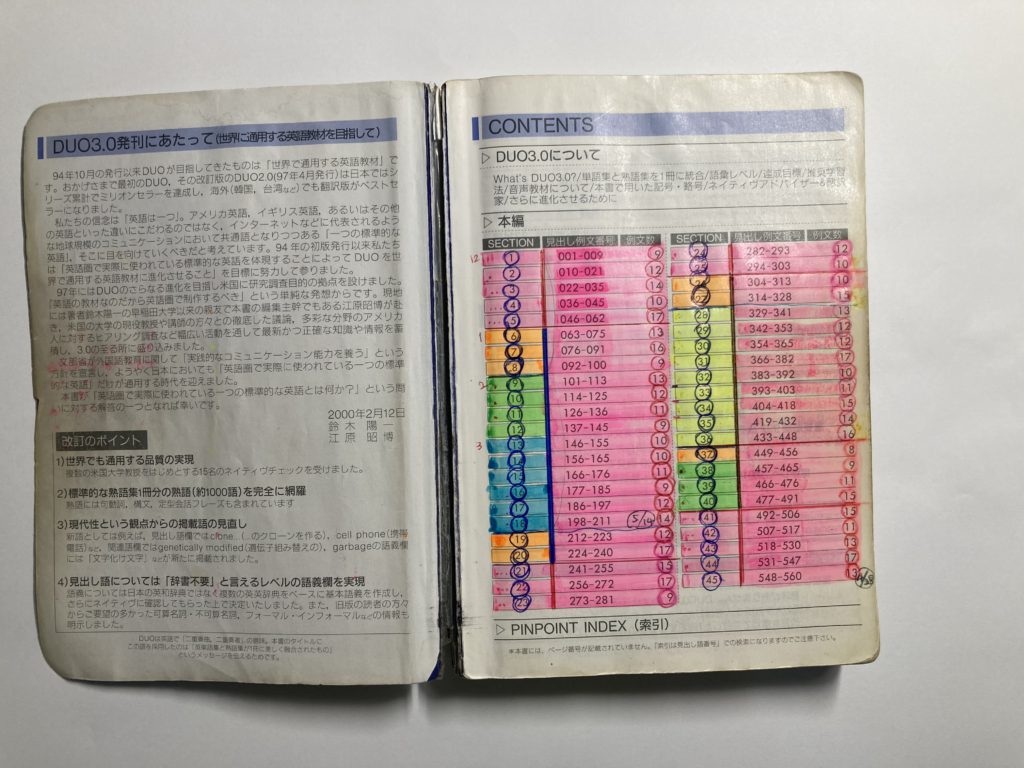 DUO3.0発刊にあたって(世界に通用する英語教材を目指して)
94年10月の発行以来DUOが目指してきたものは「世界で通用する英語教材」で
す。おかげさまで最初のDUO、その改訂版のDUO2.0(97年4月発行)は日本ではシ
リーズ累計でミリオンセラーを達成し、海外(韓国、台湾など)でも翻訳版がベストセ
ラーになりました。
私たちの信念は「英語は一つ」。アメリカ英語，イギリス英語，あるいはその他
の英語といった違いにこだわるのではなく，インターネットなどに代表されるよう
な地球規模のコミュニケーションにおいて共通語となりつつある「一つの標準的な
英語」，そこに目を向けていくべきだと考えています。94年の初版発行以来私たち
は「英語圏で実際に使われている標準的な英語を体現することによってDUOを世
界で通用する英語教材に進化させること」を目標に努力して参りました。
97年にはDUOのさらなる進化を目指し米国に研究調査目的の拠点を設けました。
「英語の教材なのだから英語圏で制作するべき」という単純な発想からです。現地
には著者鈴木陽一の早稲田大学以来の親友で本書の編集主幹でもある江原昭博が赴
き，米国の大学の現役教授や講師の方々との徹底した議論，多彩な分野のアメリカ
人に対するヒアリング調査など幅広い活動を通して最新かつ正確な知識や情報を蓄
積し，3.0の至る所に盛り込みました。
文部省が外国語教育に関して「実践的なコミュニケーション能力を養う」という
方針を宣言し，ようやく日本においても「英語圏で実際に使われている一つの標準
的な英語」だけが通用する時代を迎えました。
本書が「英語圏で実際に使われている一つの標準的な英語とは何か?」という問
いに対する解答の一つとなれば幸いです。
2000年2月12日
鈴木 陽一
江原 昭博
改訂のポイント
1)世界でも通用する品質の実現
複数の米国大学教授をはじめとする15名のネイティヴチェックを受けました。
2)標準的な熟語集1冊分の熟語(約1000語)を完全に網羅
熟語には句動詞，構文，定型会話フレーズも含まれています
3)現代性という観点からの掲載語の見直し
新語としては例えば，見出し語欄ではclone（…のクローンを作る），cell phone(携帯
電話)など，関連語欄ではgenetically modified(遺伝子組み替えの)，garbageの語義欄
には「文字化け文字」などが新たに掲載されました。
4)見出し語については「辞書不要」と言えるレベルの語義欄を実現
語義については日本の英和辞典ではなく複数の英英辞典をベースに基本語義を作成し，
さらにネイティヴに確認してもらった上で決定いたしました。また，旧版の読者の方々
からご要望の多かった可算名詞・不可算名詞，フォーマル・インフォーマルなどの情報も
明示しました。
DUOは英語で「二重奏曲，二重奏者」の意味。本書のタイトルに
この語を採用したのは「英単語集と熟語集が1冊に美しく融合されたもの」
というメッセージを伝えるためです。
CONTENTS
▷ DUO3.0について
What's DUO3.0?/単語集と熟語集を1冊に統合/語彙レベル/達成目標/推奨学習
法/音声教材について/本書で用いた記号・略号/ネイティヴアドバイザー&翻訳
家/さらに進化させるために
▷ 本編
SECTION 見出し例文番号 例文数
12 1 001-009 9
2 010-021 12
3 022-035 14
4 036-045 10
5 046-062 17
1 6 063-075 13
7 076-091 16
8 092-100 9
2 9 101-113 13
10 114-125 12
11 126-136 11
12 137-145 9
3 13 146-155 10
14 156-165 10
15 166-176 11
16 177-185 9
17 186-197 12
18 198-211 5/14 14
19 212-223 12
20 224-240 17
21 241-255 15
22 256-272 17
23 273-281 9
SECTION 見出し例文番号 例文数
24 282-293 12
25 294-303 10
26 304-313 10
27 314-328 15
28 329-341 13
29 342-353 12
30 354-365 12
31 366-382 17
32 383-392 10
33 393-403 11
34 404-418 15
35 419-432 14
36 433-448 16
37 449-456 8
38 457-465 9
39 466-476 11
40 477-491 15
41 492-506 15
42 507-517 11
43 518-530 13
44 531-547 17
45 548-560 13
▷ PINPOINT INDEX（索引）
＊本書には，ページ番号が記載されていません。「索引は見出し語番号」での検索になりますのでご注意下さい。